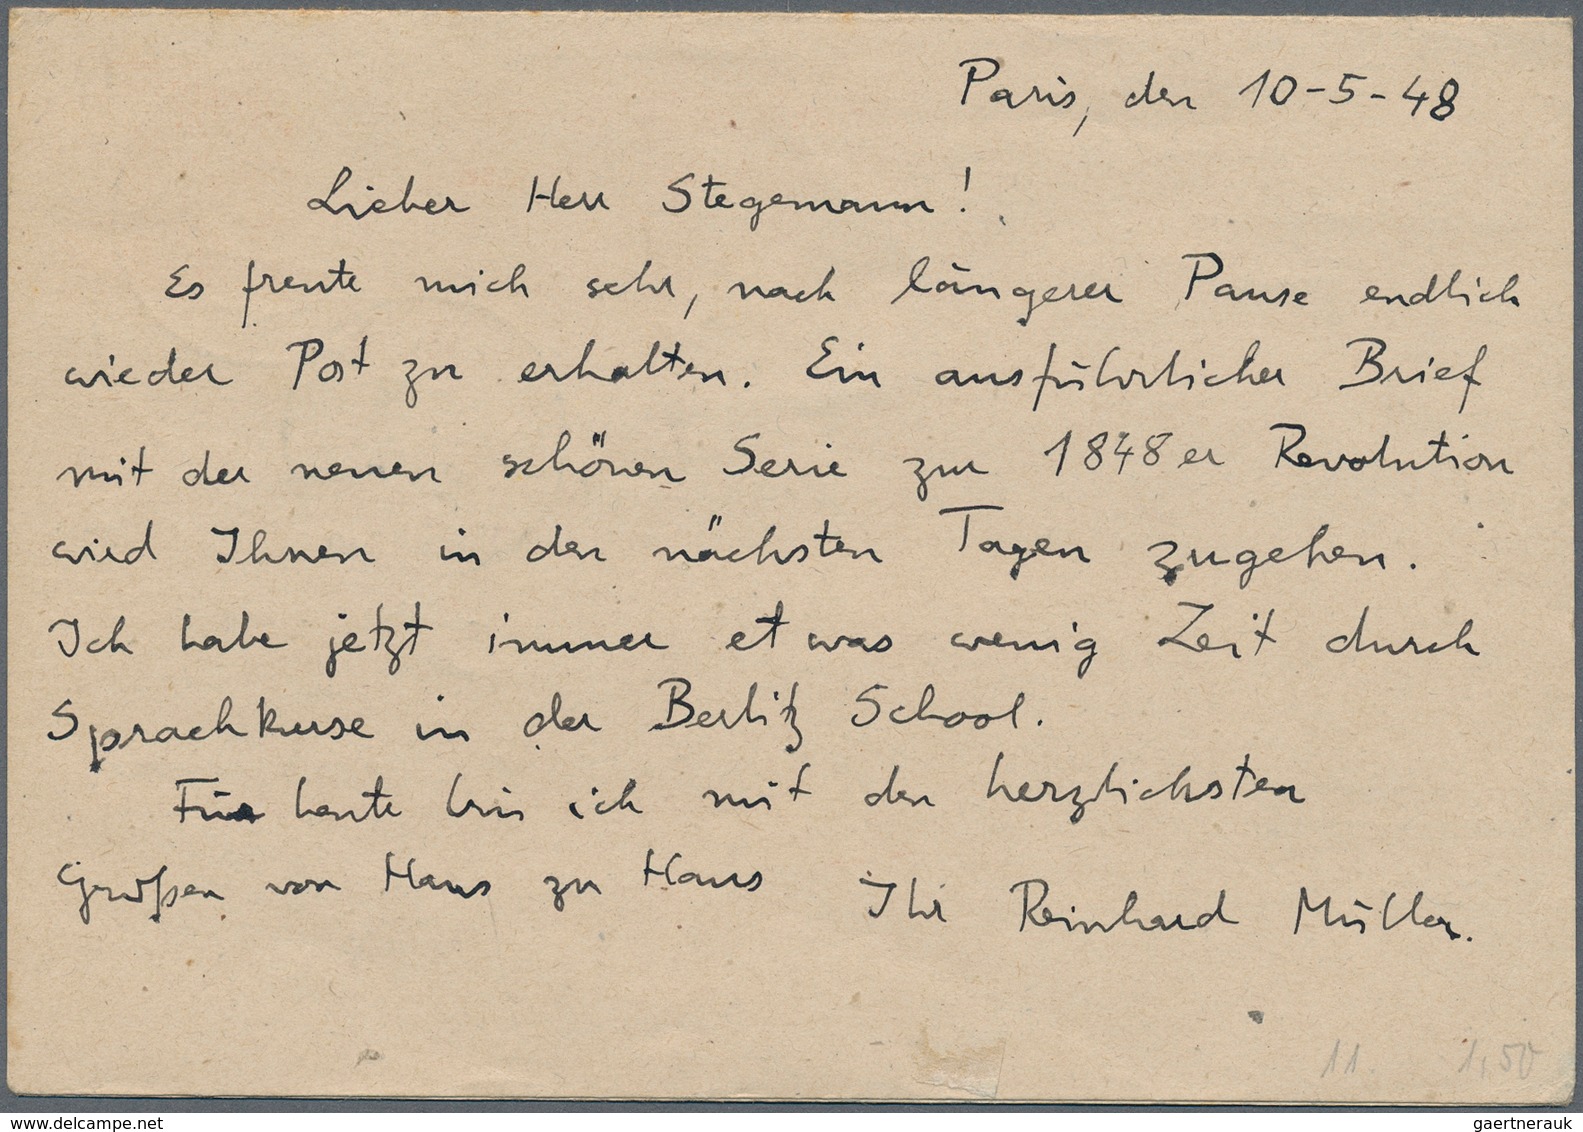 Paris, den 10-5-48
Lieber Herr Stegemann!
Es freute mich sehr, nach längerer Pause endlich
wieder Post zu erhalten. Ein ausführlicher Brief
mit der neuen schönen Serie zur 1848er Revolution
wird Ihnen in den nächsten Tagen zugehen.
Ich habe jetzt immer etwas wenig Zeit durch
Sprachkurse in der Berlitz School.
Für heute bin ich mit den herzlichsten
Grüßen von Haus zu Haus Ihr Reinhard Müller.
11. 1,50
www.delcampe.net
gaertnerauk